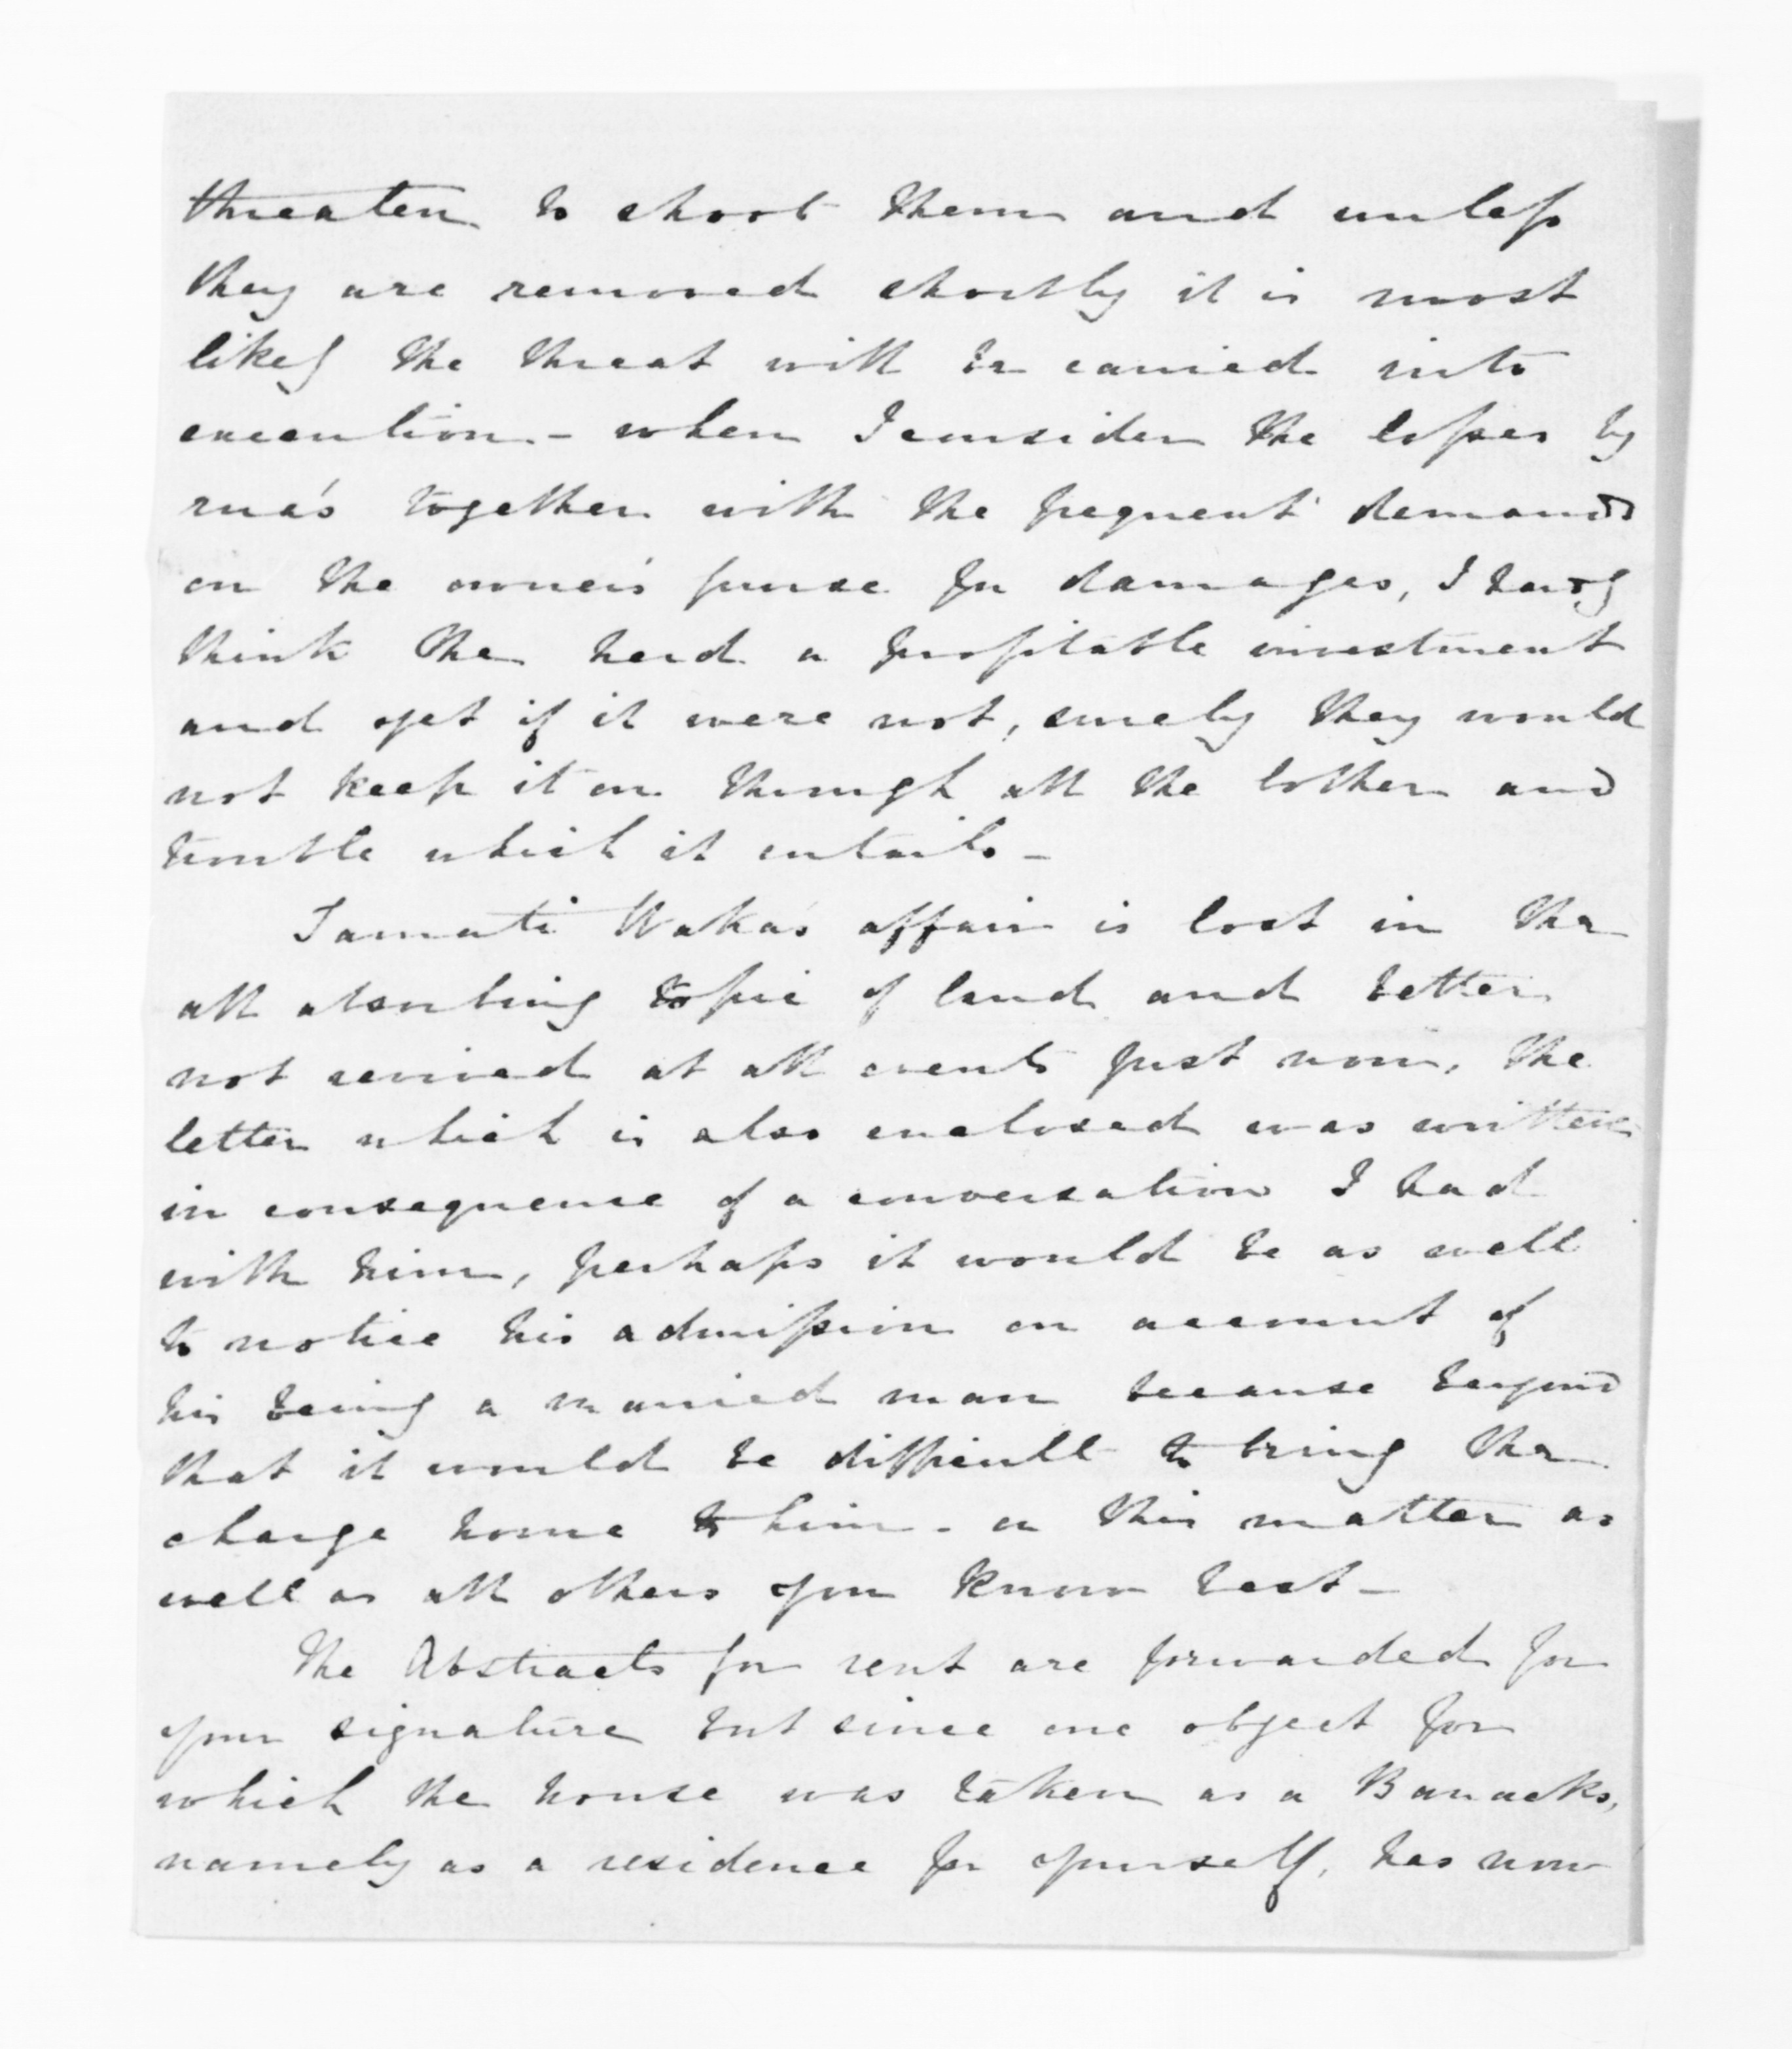 threaten to shoot them and unless
they are removed shortly it is most
likely the threat will be carried into
execution - when I consider the losses by
rua's together with the frequent demands
on the owner's purse for damages, I hardly
think the herd a profitable investment
and yet if it were not, surely they would
not keep it on through all the bother and
trouble which it entails -
Tamati Waka's affair is lost in the
all absorbing topic of land and better
not revived at all events just now, the
letter which is also enclosed was written
in consequence of a conversation I had
with him, perhaps it would be as well
to notice his admission on account of
his being a married man because beyond
that it would be difficult to bring the
charge home to him - on this matter as
well as all others you know best -
The Abstracts for rent are forwarded for
your signature but since one object for
which the house was taken as a Barracks,
namely as a residence for yourself, has now